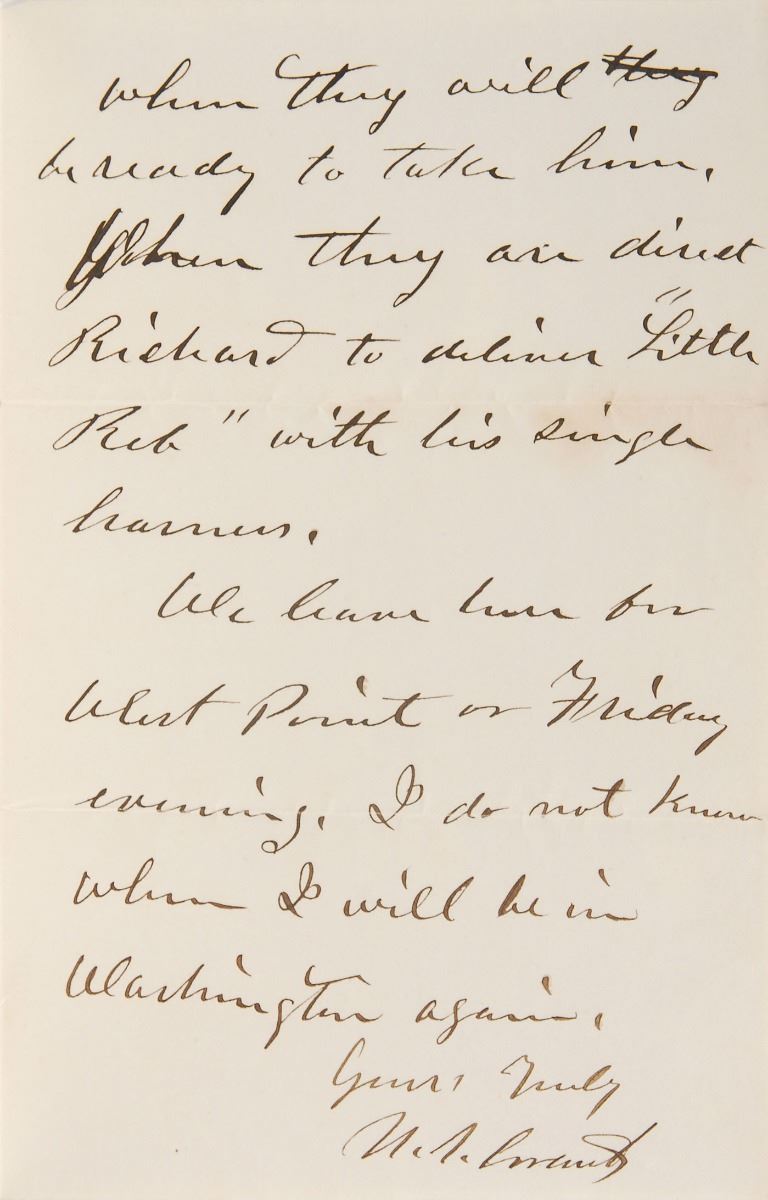 when they will they
be ready to take him.
When they are direct
Richard to deliver "Little
Reb" with his single
harness.
We leave here for
West Point on Friday
evening. I do not know
when I will be in
Washington again.
Yours Truly
U. S. Grant